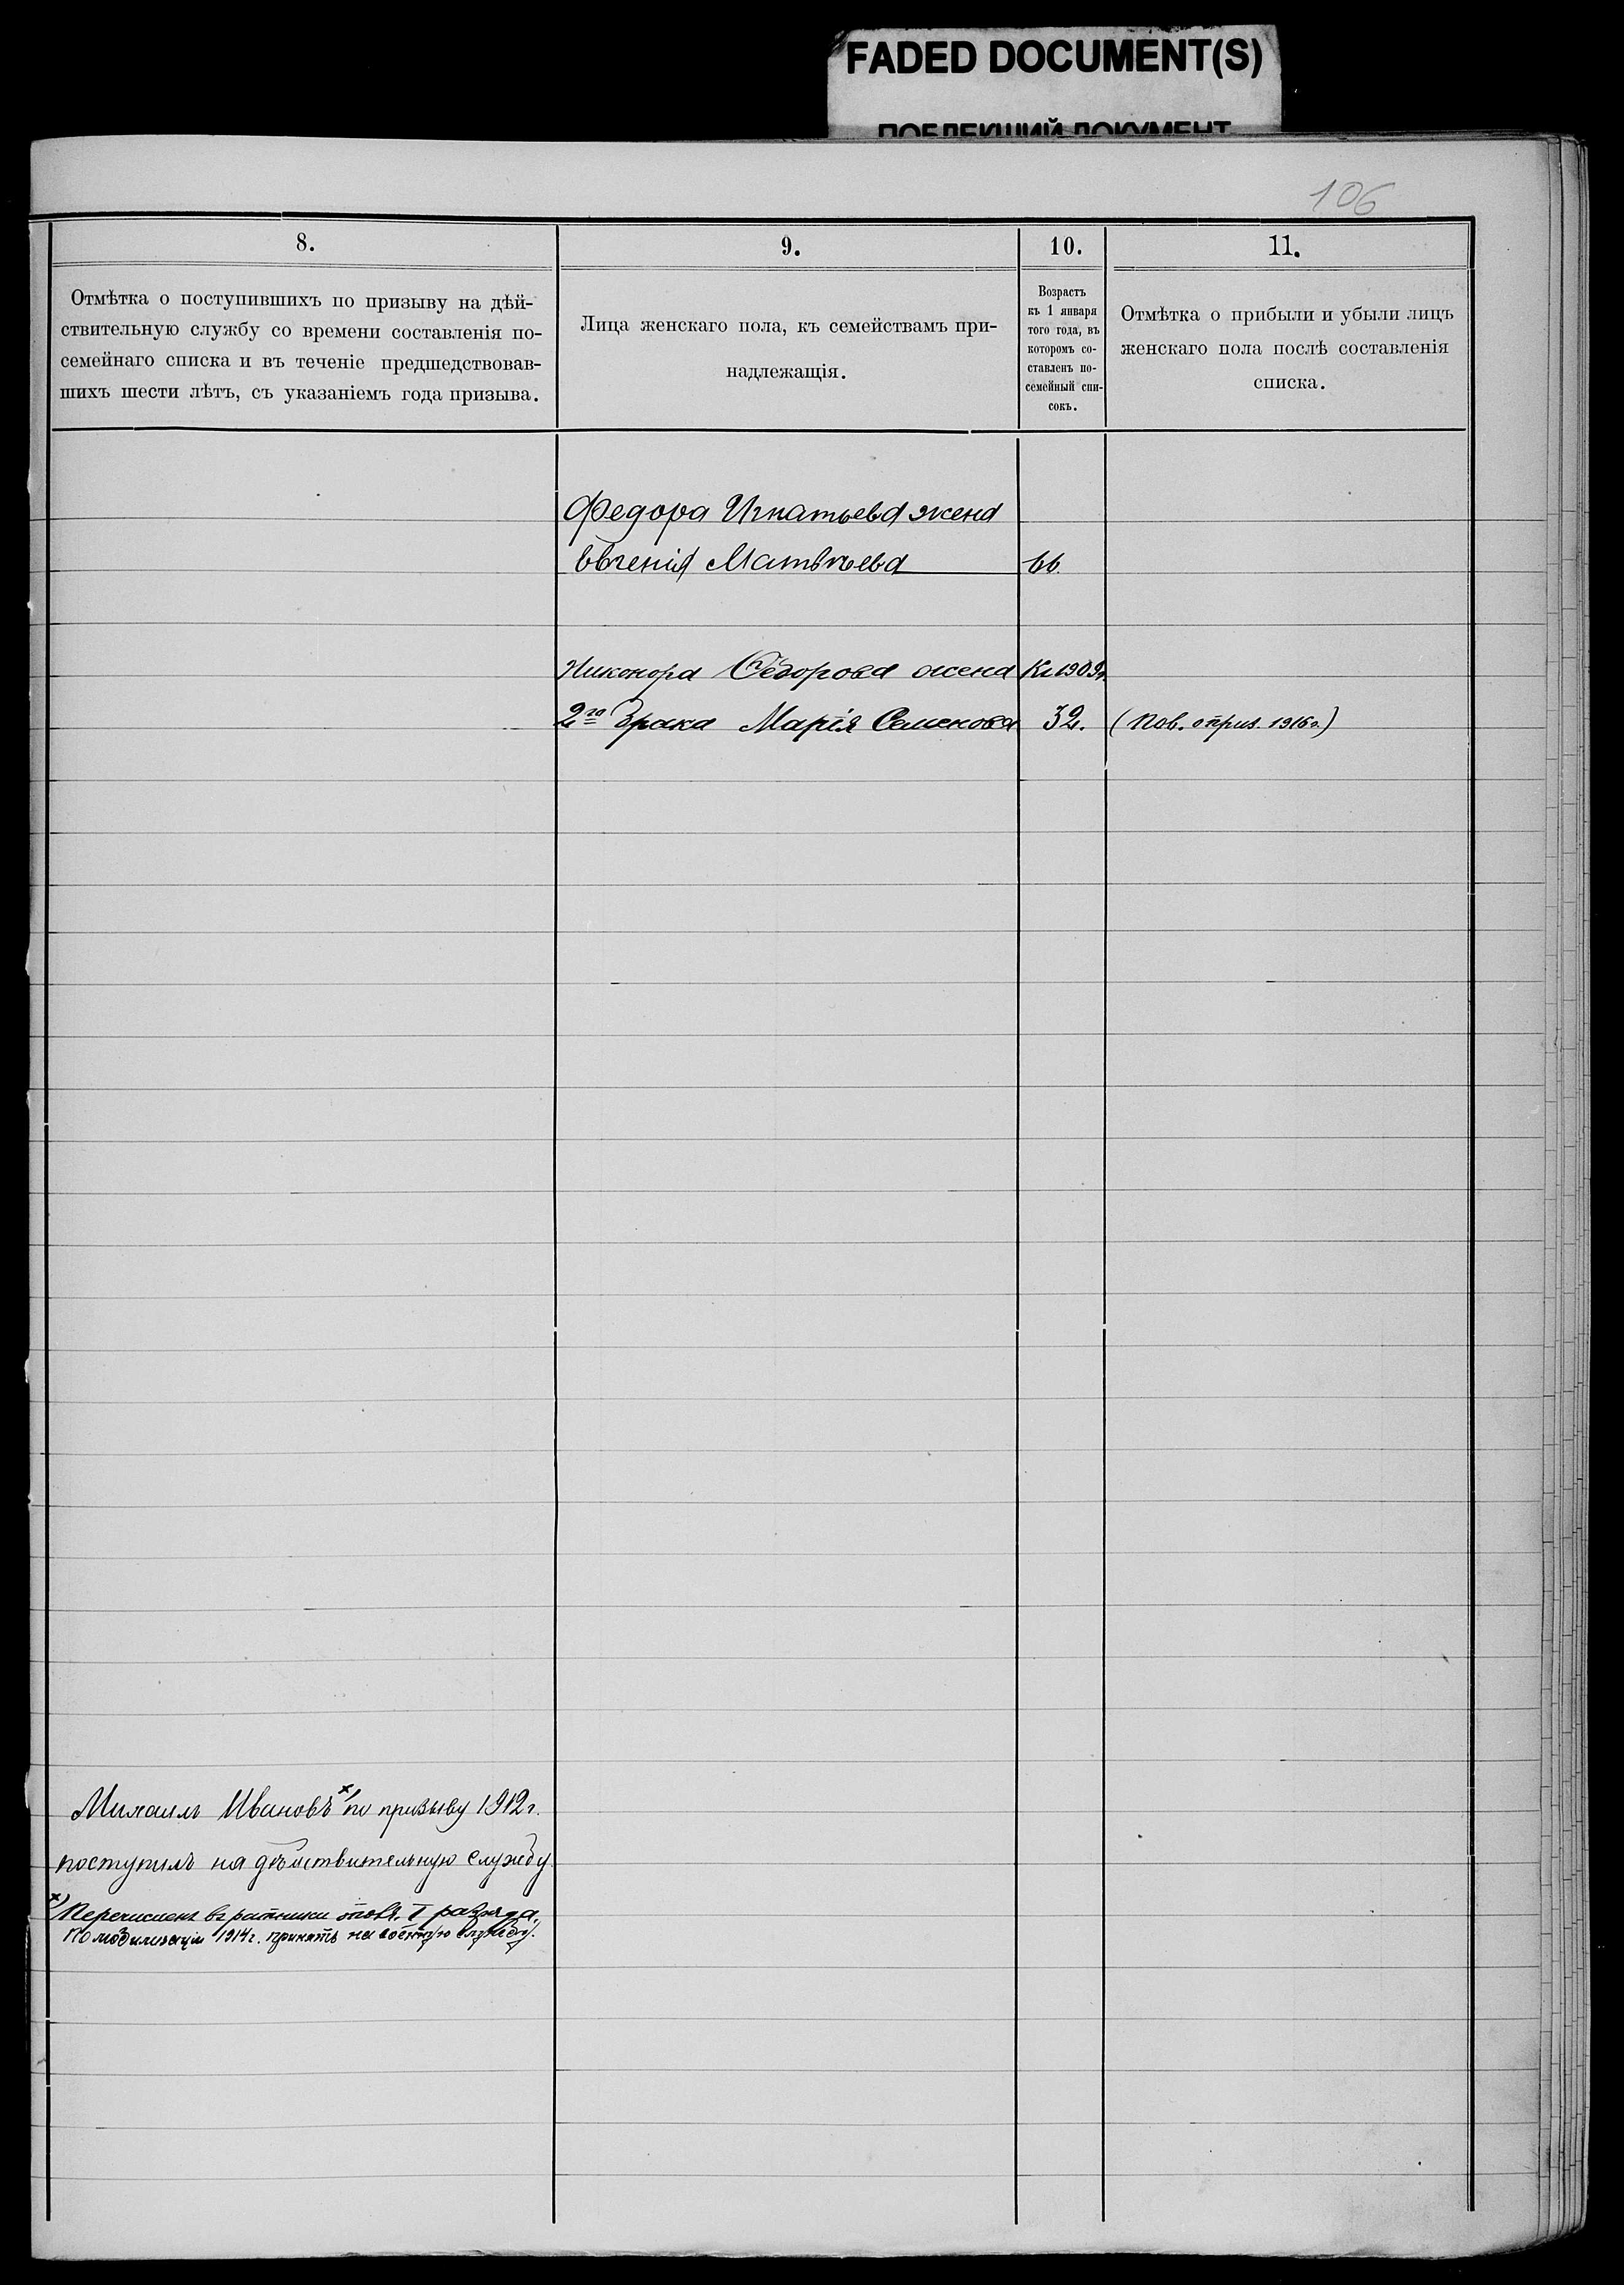 FADED DOCUMENT(S)
ПОБЛЕКШИЙ ДОКУМЕНТ
106
8.
9.
10.
11.
Отмѣтка о поступившихъ по призыву на дѣй-
ствительную службу со времени составленія по-
семейнаго списка и въ теченіе предшедствовав-
шихъ шести лѣтъ, съ указаніемъ года призыва.
Лица женскаго пола, къ семействамъ при-
надлежащія.
Возрастъ
къ 1 января
того года, въ
которомъ со-
ставленъ по-
семейный спи-
сокъ.
Отмѣтка о прибыли и убыли лицъ
женскаго пола послѣ составленія
списка.
Федора Игнатьева жена
Евгенія Матвѣева 66.
Никонора Федорова жена Къ 1909г.
2го брака Марія Семенова 32. (Пов. о приз. 1916г.)
Михаилъ Ивановъ х) по призыву 1912г.
поступилъ на дѣйствительную службу
х) Перечисленъ въ ратники опол. I разряда.
По мобилизаціи 1914г. принятъ на военную службу.